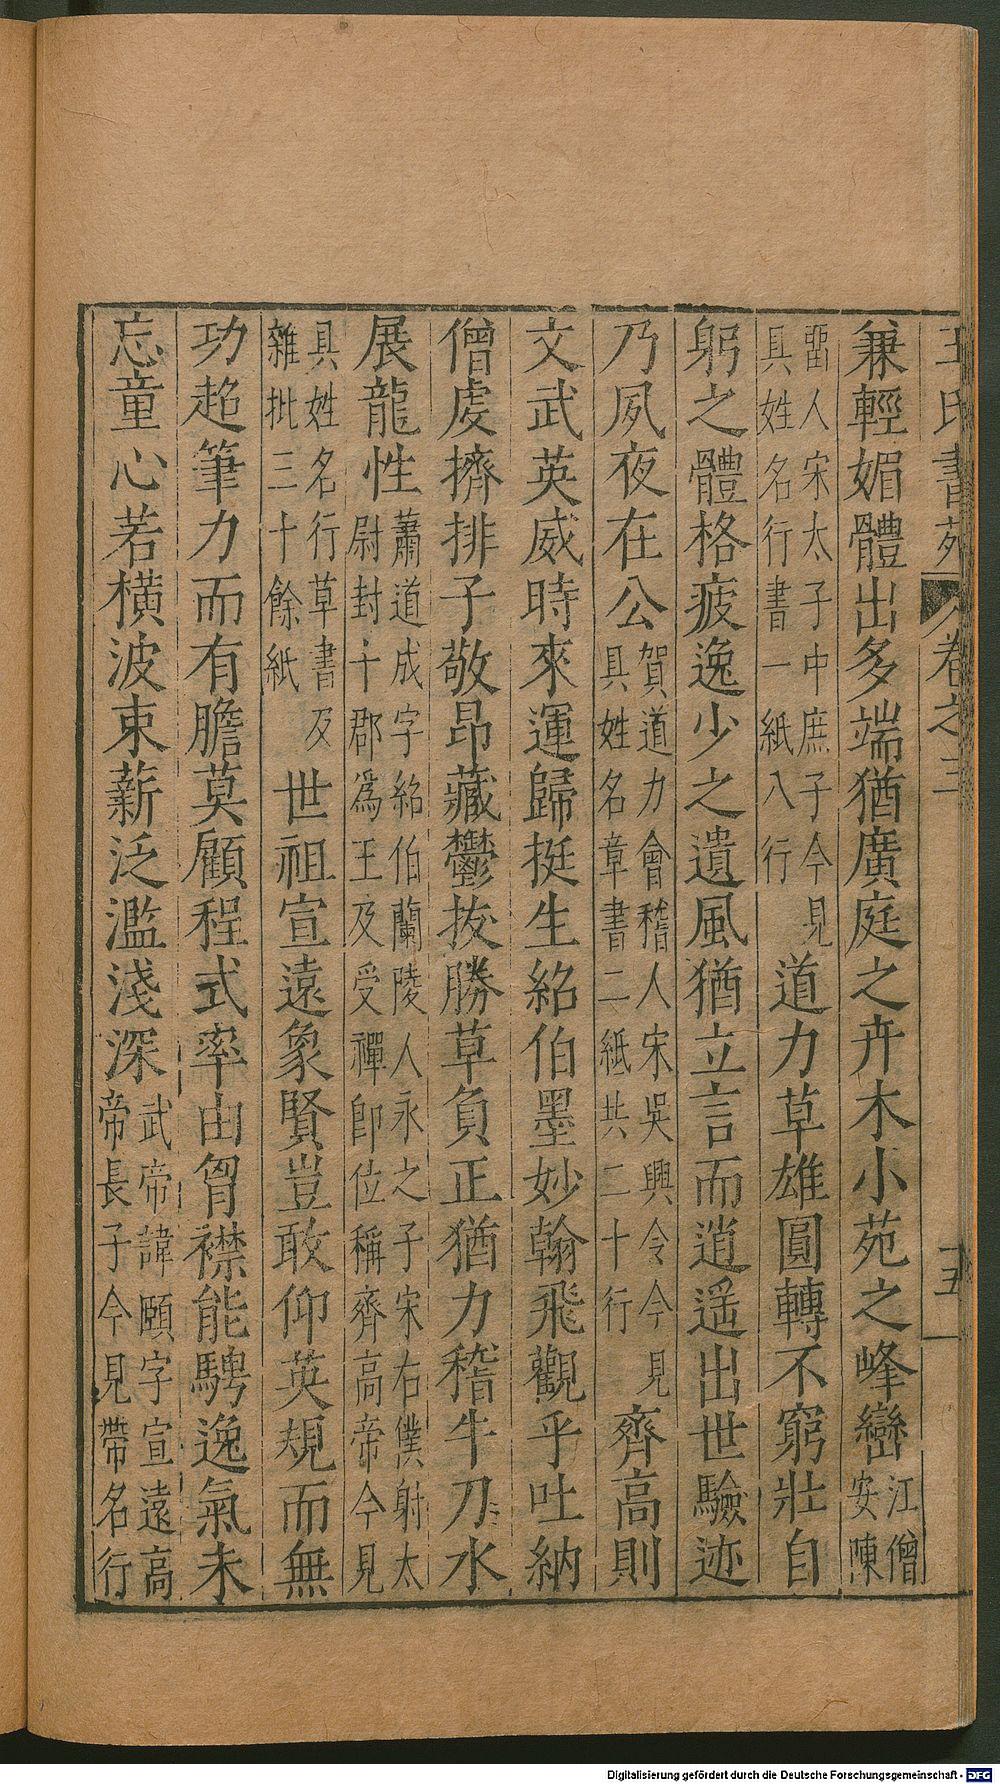 王氏書苑 卷之三 十五
兼輕媚體出多端猶廣庭之卉木小苑之峰巒江僧安陳
留人宋太子中庶子今見具姓名行書一紙八行 道力草雄圓轉不窮壯自
躬之體格疲逸少之遺風猶立言而逍遥出世驗迹
乃夙夜在公賀道力會稽人宋吳興令今見具姓名章書二紙共二十行 齊高則
文武英威時來運歸挺生紹伯墨妙翰飛觀乎吐納
僧虔擠排子敬昂藏鬱拔勝草負正猶力稽牛刀水
展龍性蕭道成字紹伯蘭陵人永之子宋右僕射太尉封十郡爲王及受禪卽位稱齊高帝今見
具姓名行草書及雜批三十餘紙 世祖宣遠象賢豈敢仰英規而無
功超筆力而有膽莫顧程式率由胷襟能騁逸氣未
忘童心若橫波束薪泛濫淺深武帝諱頤字宣遠高帝長子今見帶名行
Digitalisierung gefördert durch die Deutsche Forschungsgemeinschaft - DFG